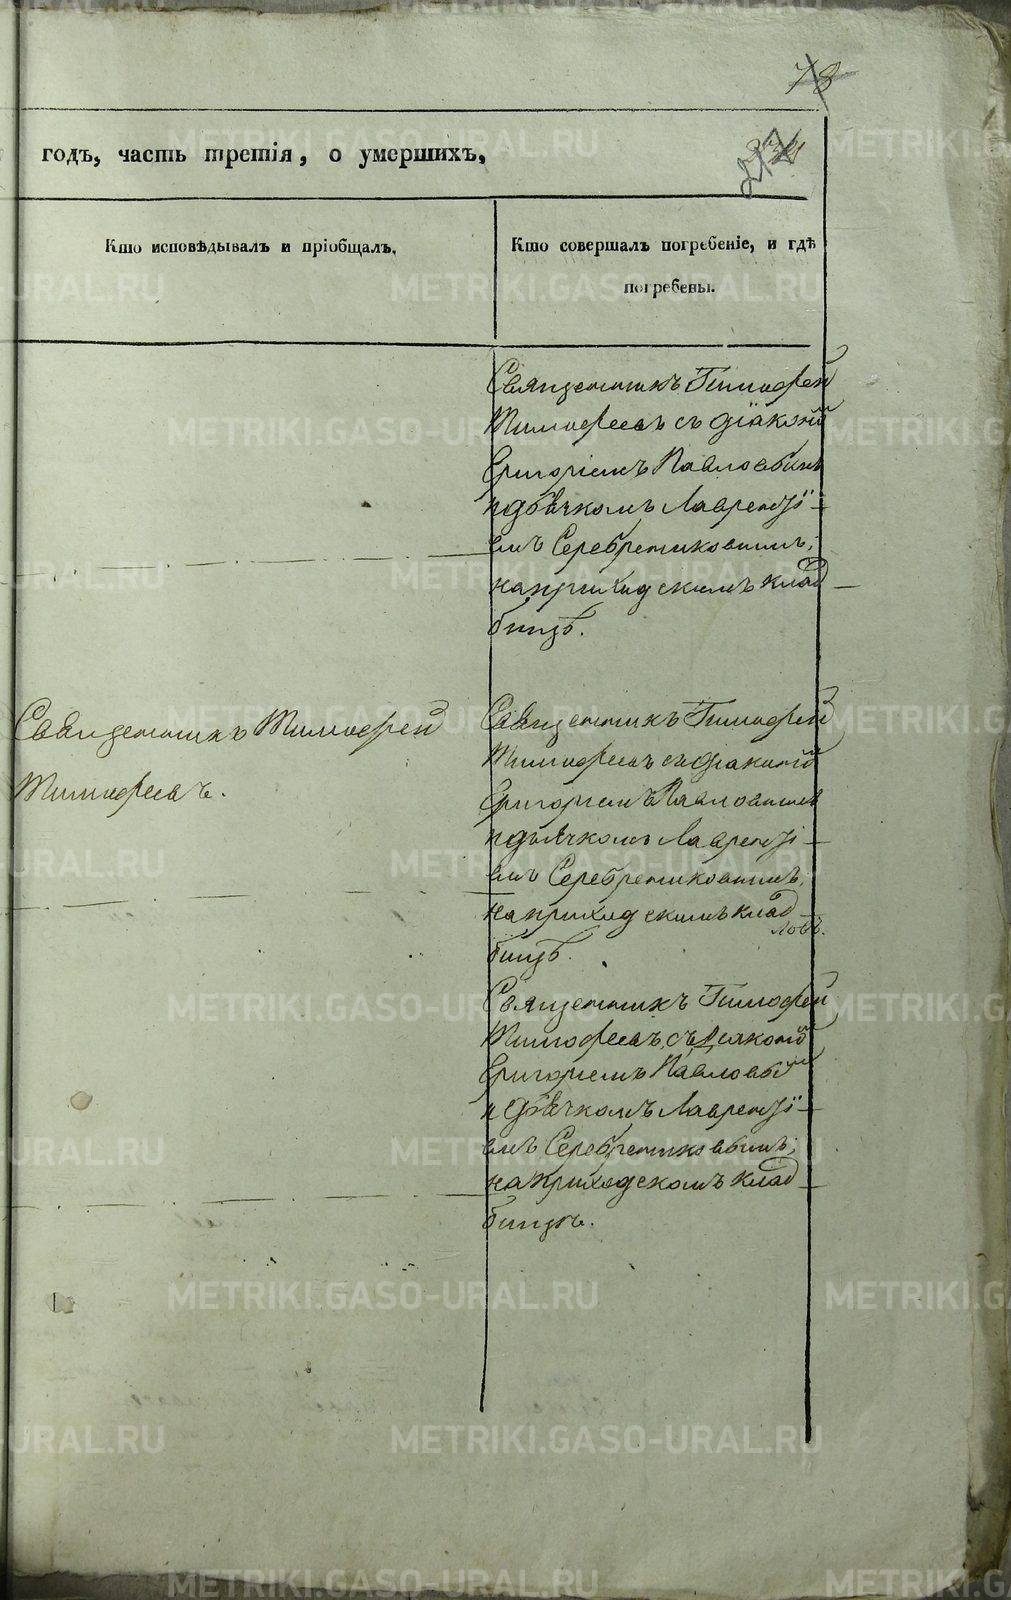 78
годъ, часть третія, о умершихъ,
Кто исповѣдывалъ и пріобщалъ.
Кто совершалъ погребеніе, и гдѣ
погребены.
Священникъ Тимофей
Тимофеевъ съ діакономъ
Григоріемъ Павловымъ
и дьячкомъ Лаврентьі-
емъ Серебрениковымъ;
на приходскимъ клад-
бищѣ.
Священникъ Тимофей
Тимофеевъ.
Священникъ Тимофей
Тимофеевъ съ діакономъ
Григоріемъ Павловымъ
и дьячкомъ Лаврентьі-
емъ Серебрениковымъ,
на приходскимъ клад-
бищѣ.
Священникъ Тимофей
Тимофеевъ, съ Діакономъ
Григоріемъ Павловым
и дьячкомъ Лаврентьі-
емъ Серебрениковымъ;
на приходскомъ клад-
бищѣ.
METRIKI.GASO-URAL.RU